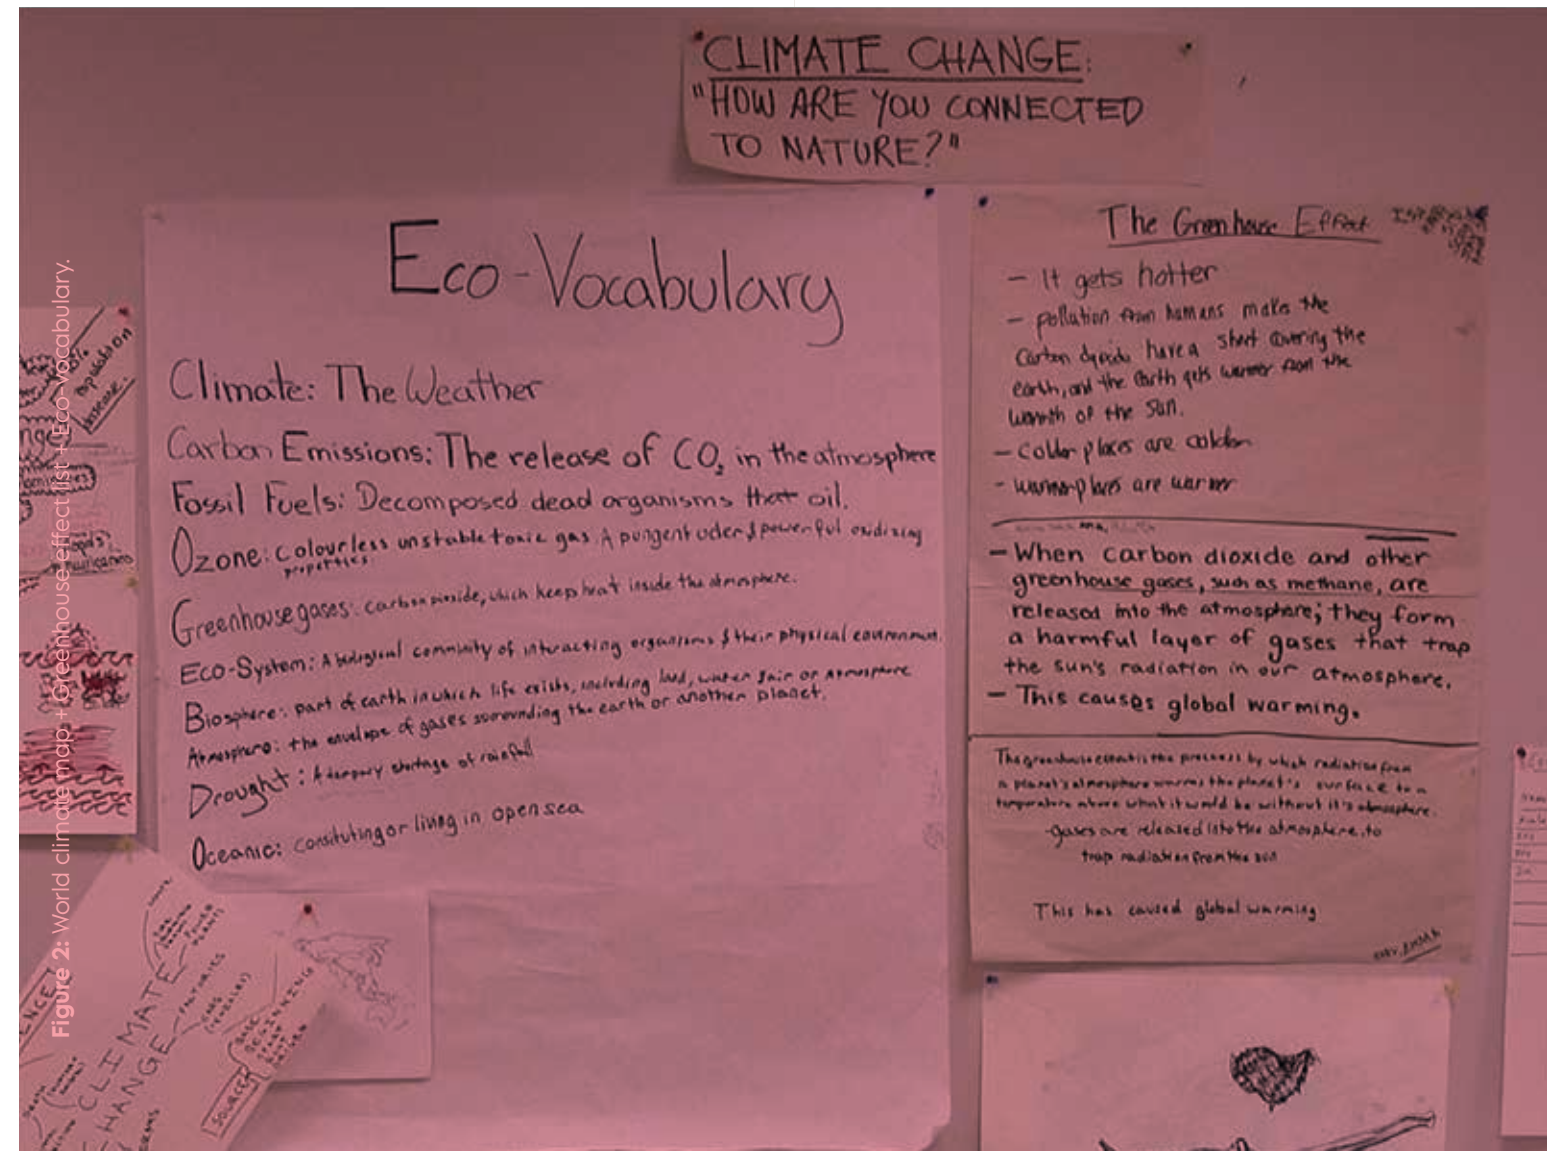 CLIMATE CHANGE:
"HOW ARE YOU CONNECTED
TO NATURE?"
Eco-Vocabulary
Climate: The Weather
Carbon Emissions: The release of CO₂ in the atmosphere
Fossil Fuels: Decomposed dead organisms that oil.
Ozone: colourless unstable toxic gas A pungent oder & powerful oxidizing
properties.
Greenhouse gases: carbon dioxide, which keep heat inside the atmosphere.
Eco-System: A biological community of interacting organisms & their physical environment.
Biosphere: part of earth in which life exists, including land, water & air or atmosphere
Atmosphere: the envelope of gases surrounding the earth or another planet.
Drought: A temporary shortage of rainfall
Oceanic: consituting or living in open sea
The Greenhouse Effect
- It gets hotter
- pollution from humans make the
Carbon dyoxide have a sheet covering the
earth, and the Earth gets warmer from the
warmth of the Sun.
- colder places are colder
- warmer places are warmer
- When carbon dioxide and other
greenhouse gases, such as methane, are
released into the atmosphere; they form
a harmful layer of gases that trap
the sun's radiation in our atmosphere.
- This causes global warming.
The greenhouse effect is the process by which radiation from
a planet's atmosphere warms the planet's surface to a
temperature above what it would be without it's atmosphere.
-gases are released into the atmosphere to
trap radiation from the sun
This has caused global warming
population
CLIMATE
CHANGE
FACTORIES
CARS
POWER
PLANTS
BEGINNING
START
SOURCE
Figure 2: World climate map + Greenhouse effect list + Eco-vocabulary.